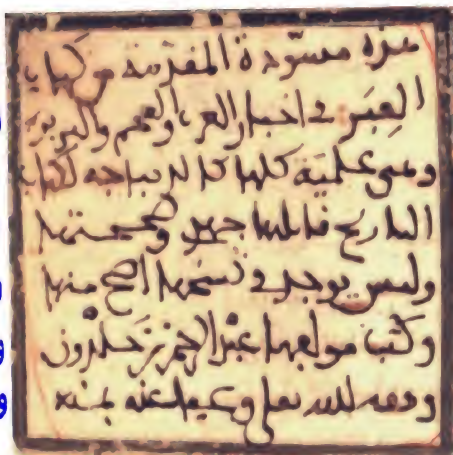 هذه مسودة المقدمة من كتاب
العِبَر في اخبار العرب والعجم والبربر
وهي علمية كلها كالديباجة لكتاب
التاريخ قابلتها جهدي وصححتها
وليس يوجد في نسخها اصح منها
وكتب مؤلفها عبد الرحمن بن خلدون
وفقه الله تعلى وعفا عنه بمنه